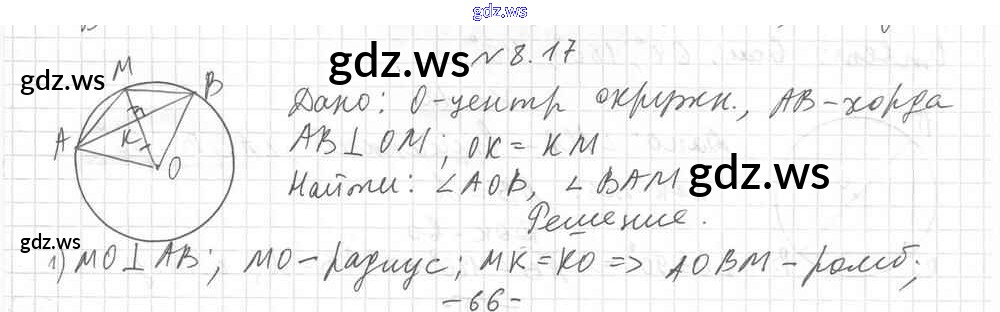 gdz.ws
№ 8.17
gdz.ws
gdz.ws
M
B
A
K
O
Дано: O-центр окружн., AB-хорда
AB⊥OM; OK=KM
Найти: ∠AOB, ∠BAM
gdz.ws
Решение.
gdz.ws
1) MO⊥AB; MO-радиус; MK=KO => AOBM-ромб;
-66-